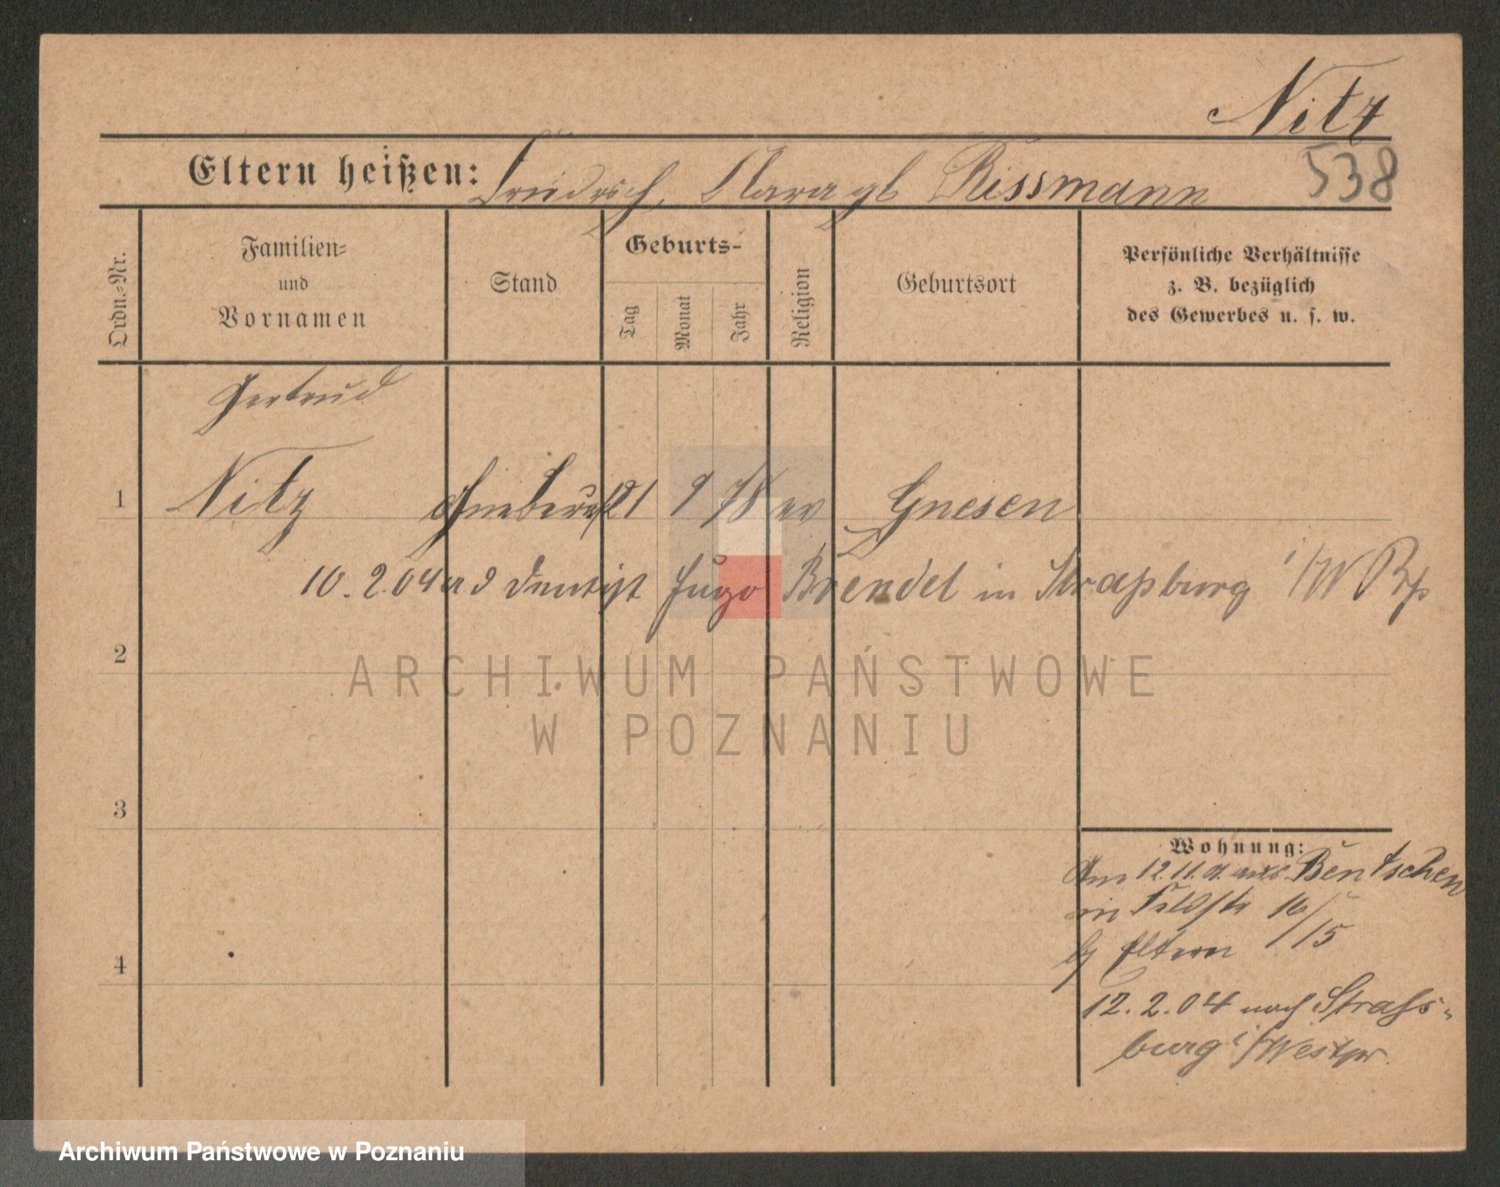 Nitz
538
Eltern heißen: Friedrich, Clara gb Rissmann
Ordn.-Nr.
Familien-
und
Vornamen
Stand
Geburts-
Tag
Monat
Jahr
Religion
Geburtsort
Persönliche Verhältnisse
z. B. bezüglich
des Gewerbes u. s. w.
Gertrud
1 Nitz 21 9 78 ev Gnesen
10.2.04 Dentist Hugo Brendel in Straßburg i/W Pr
2
3
4
ARCHIWUM PAŃSTWOWE
W POZNANIU
Wohnung:
Am 12.11. aus Bentschen
in Feldstr 16/
by Eltern /15
12.2.04 nach Straß-
burg i/Westpr.
Archiwum Państwowe w Poznaniu